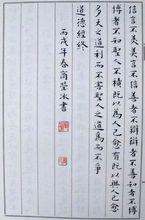 信言不美美言不信善者不辯辯者不善知者不博
博者不知聖人不積既以為人己愈有既以與人己愈
多天之道利而不害聖人之道為而不爭
道德經終
丙戌年春商瑩冰書